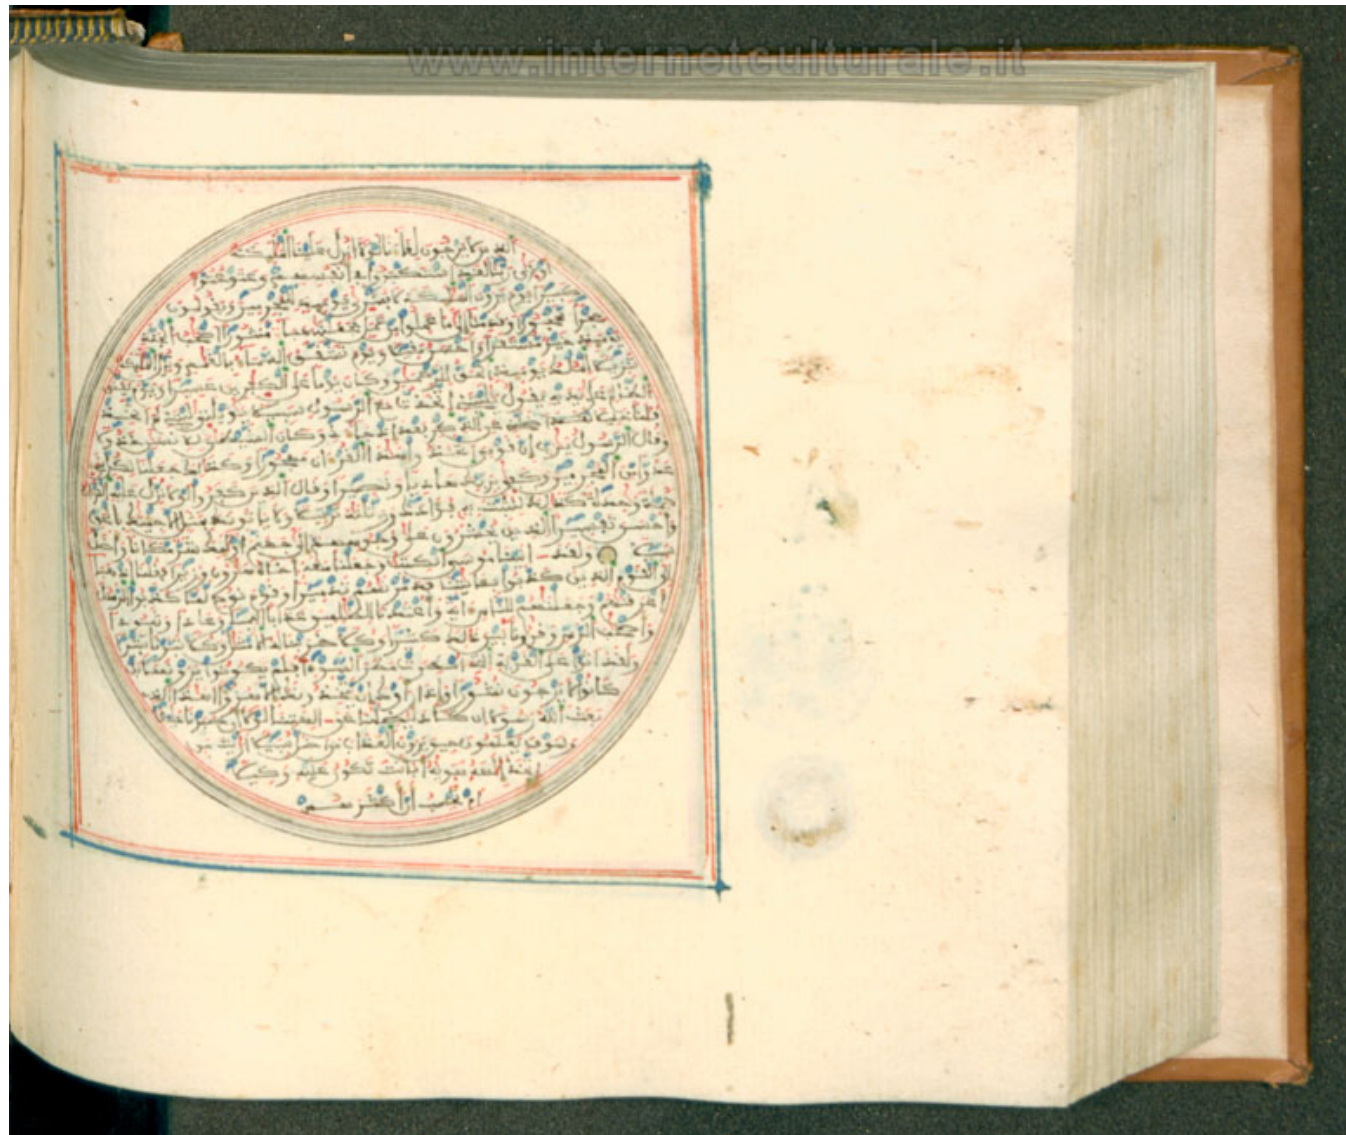 www.internetculturale.it
الذين لا يرجون لقاءنا لولا انزل علينا الملئكة
او نرى ربنا لقد استكبروا في انفسهم وعتو عتوا
كبيرا يوم يرون الملئكة لا بشرى يومئذ للمجرمين ويقولون
حجرا محجورا وقدمنا الى ما عملوا من عمل فجعلنه هباء منثورا اصحب الجنة
يومئذ خير مستقرا واحسن مقيلا ويوم تشقق السماء بالغمم ونزل الملئكة
تنزيلا الملك يومئذ الحق للرحمن وكان يوما على الكفرين عسيرا ويوم يعض
الظالم على يديه يقول يليتني اتخذت مع الرسول سبيلا يويلتى ليتني لم اتخذ
فلانا خليلا لقد اضلني عن الذكر بعد اذ جاءني وكان الشيطن للانسن خذولا
وقال الرسول يرب ان قومي اتخذوا هذا القرءان مهجورا وكذلك جعلنا لكل نبيء
عدوا من المجرمين وكفى بربك هاديا ونصيرا وقال الذين كفروا لولا نزل عليه القرءان
جملة وحدة كذلك لنثبت به فؤادك ورتلنه ترتيلا ولا ياتونك بمثل الا جئنك بالحق
واحسن تفسيرا الذين يحشرون على وجوههم الى جهنم اولئك شر مكانا واضل
سبيلا ولقد اتينا موسى الكتب وجعلنا معه اخاه هرون وزيرا فقلنا اذهبا
الى القوم الذين كذبوا بايتنا فدمرنهم تدميرا وقوم نوح لما كذبوا الرسل
اغرقنهم وجعلنهم للناس ءاية واعتدنا للظلمين عذابا اليما وعادا وثمودا
واصحب الرس وقرونا بين ذلك كثيرا وكلا ضربنا له الامثل وكلا تبرنا تتبيرا
ولقد اتوا على القرية التي امطرت مطر السوء افلم يكونوا يرونها بل
كانوا لا يرجون نشورا واذا راوك ان يتخذونك الا هزؤا اهذا الذي
بعث الله رسولا ان كاد ليضلنا عن الهتنا لولا ان صبرنا عليها
وسوف يعلمون حين يرون العذاب من اضل سبيلا ارايت من
اتخذ الهه هويه افانت تكون عليه وكيلا
ام تحسب ان اكثرهم